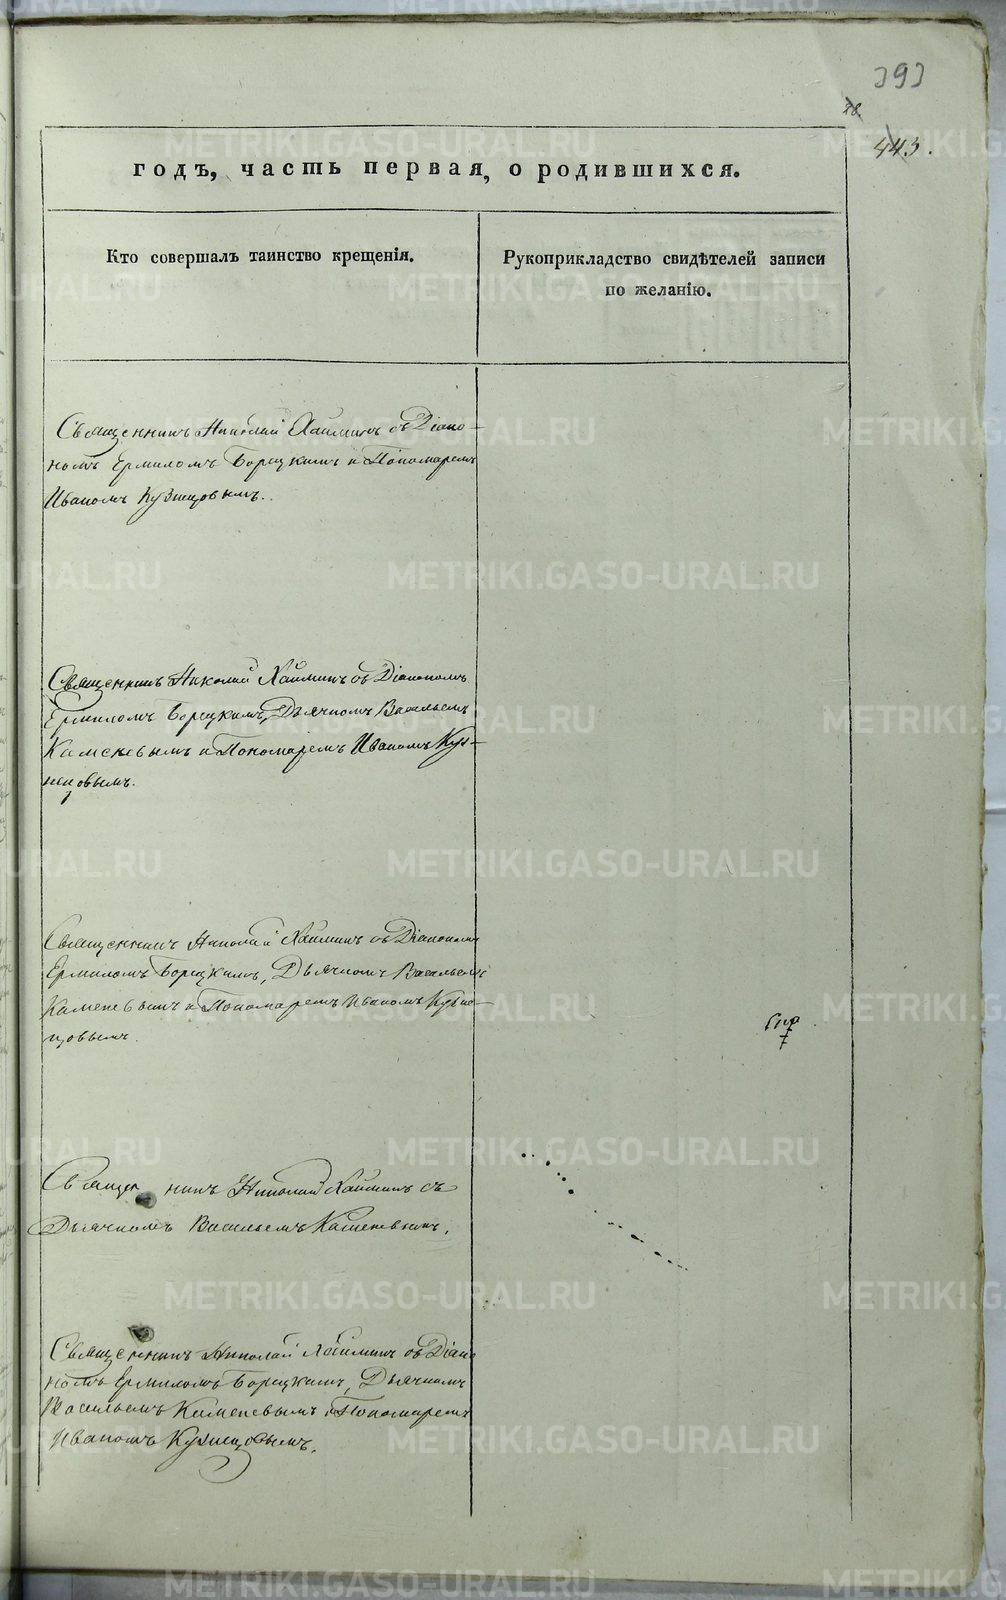 393
28.
443.
годъ, часть первая, о родившихся.
Кто совершалъ таинство крещенія.
Рукоприкладство свидѣтелей записи
по желанію.
Священникъ Николай Хаймикъ съ Діако-
номъ Ермиломъ Борецкимъ и Пономаремъ
Иваномъ Кузнецовымъ.
Священникъ Николай съ Діакономъ
Ермиломъ Борецкимъ, Дьячкомъ Васильемъ
Каменевымъ и Пономаремъ Иваномъ Куз-
нецовымъ.
Священникъ Николай съ Діакономъ
Ермиломъ Борецкимъ, Дьячкомъ Васильемъ
Каменевымъ и Пономаремъ Иваномъ Кузне-
цовымъ.
Священникъ Николай съ
Дьячкомъ Васильемъ Каменевымъ.
Священникъ Николай съ Діако
номъ Ермиломъ Борецкимъ, Дьячкомъ
Васильемъ Каменевымъ и Пономаремъ
Иваномъ Кузнецовымъ.
METRIKI.GASO-URAL.RU